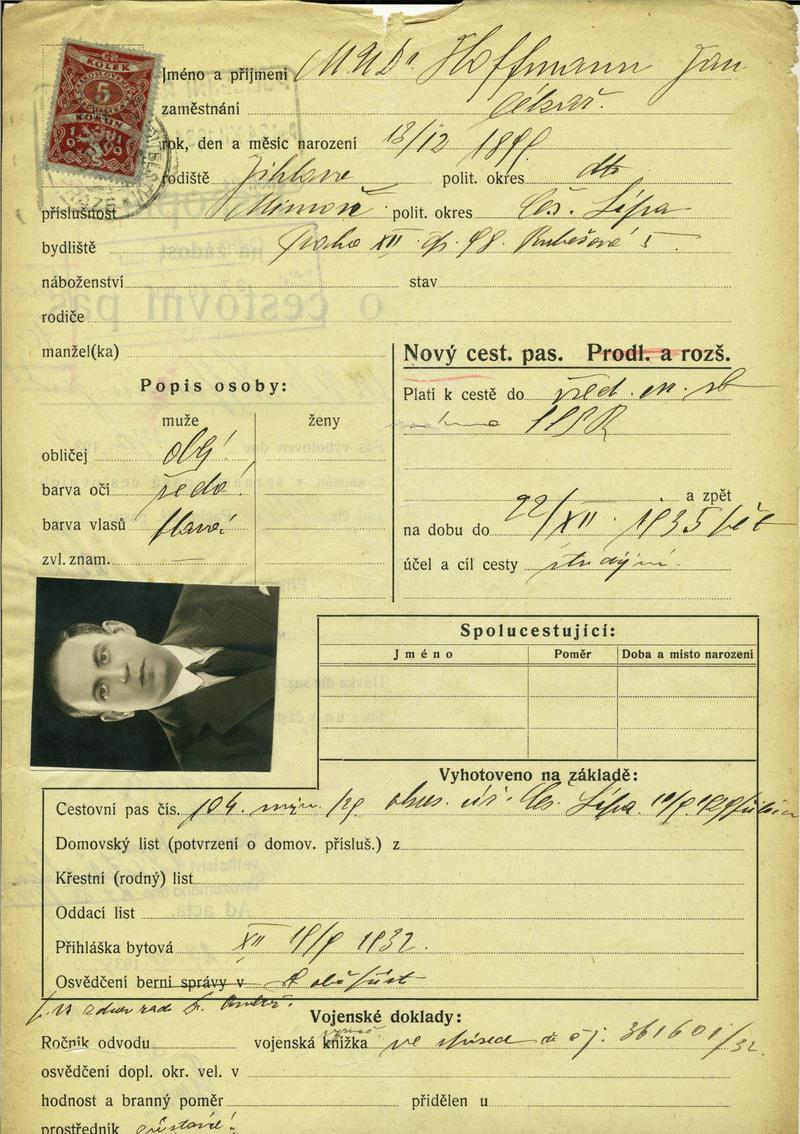 KOLEK
5
KORUN
Jméno a příjmení MUDr Hoffmann Jan
zaměstnání lékař.
rok, den a měsíc narození 18/12 189
rodiště Jihlava polit. okres dto
příslušnost Mimoň polit. okres Čes. Lípa
bydliště Praha XII. čp. 98. Rubešova 5
náboženství stav
rodiče
manžel(ka)
Nový cest. pas. Prodl. a rozš.
Popis osoby:
muže ženy
obličej obl.
barva očí šedá
barva vlasů plavá
zvl. znam. —
Platí k cestě do
SSSR
a zpět
na dobu do 22/XII. 1935
účel a cíl cesty studijní.
Spolucestující:
Jméno Poměr Doba a místo narození
Vyhotoveno na základě:
Cestovní pas čís. 104. /29 okres. úř. Čes. Lípa
Domovský list (potvrzení o domov. přísluš.) z
Křestní (rodný) list
Oddací list
Přihláška bytová XII 19/9 1932.
Osvědčení berní správy v
Vojenské doklady:
Ročník odvodu vojenská knížka ve čj. 361601/32.
osvědčení dopl. okr. vel. v
hodnost a branný poměr přidělen u
prostředník